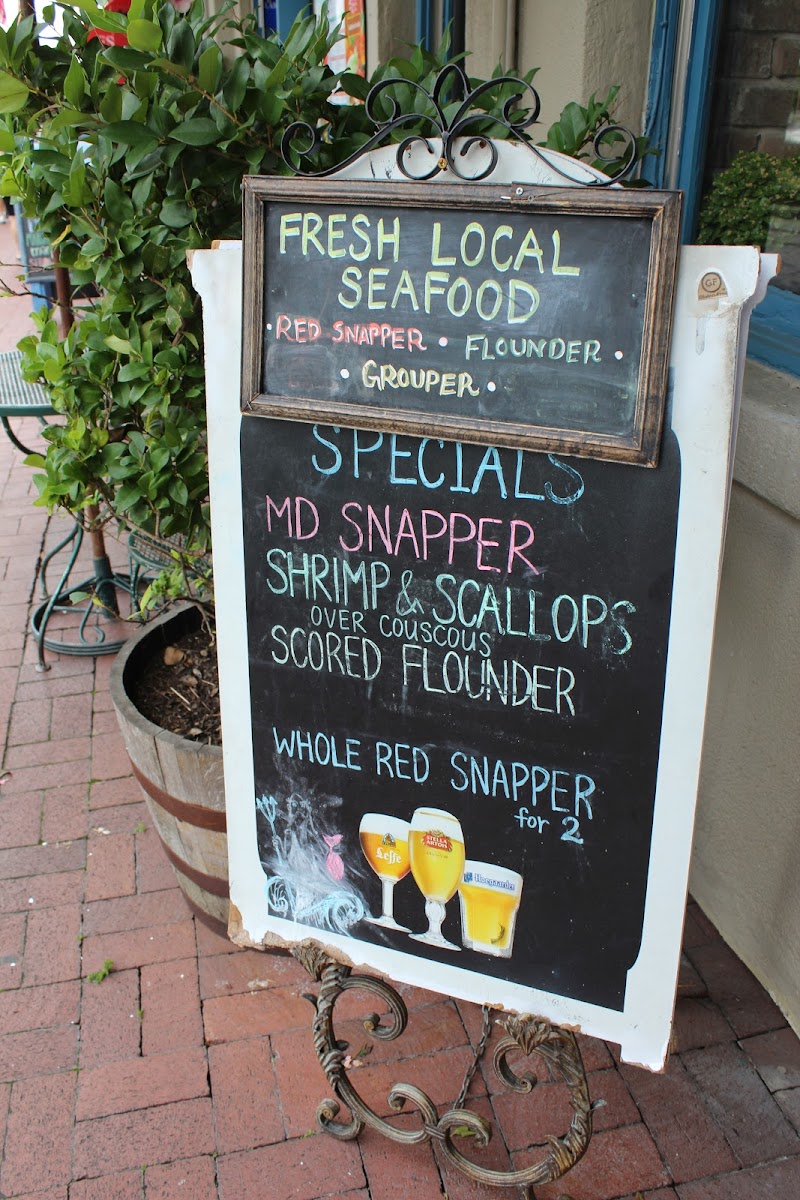 FRESH LOCAL
SEAFOOD
• RED SNAPPER • FLOUNDER •
• GROUPER •
GF
SPECIALS
MD SNAPPER
SHRIMP & SCALLOPS
OVER COUSCOUS
SCORED FLOUNDER
WHOLE RED SNAPPER
for 2
Leffe
STELLA
ARTOIS
Hoegaarden